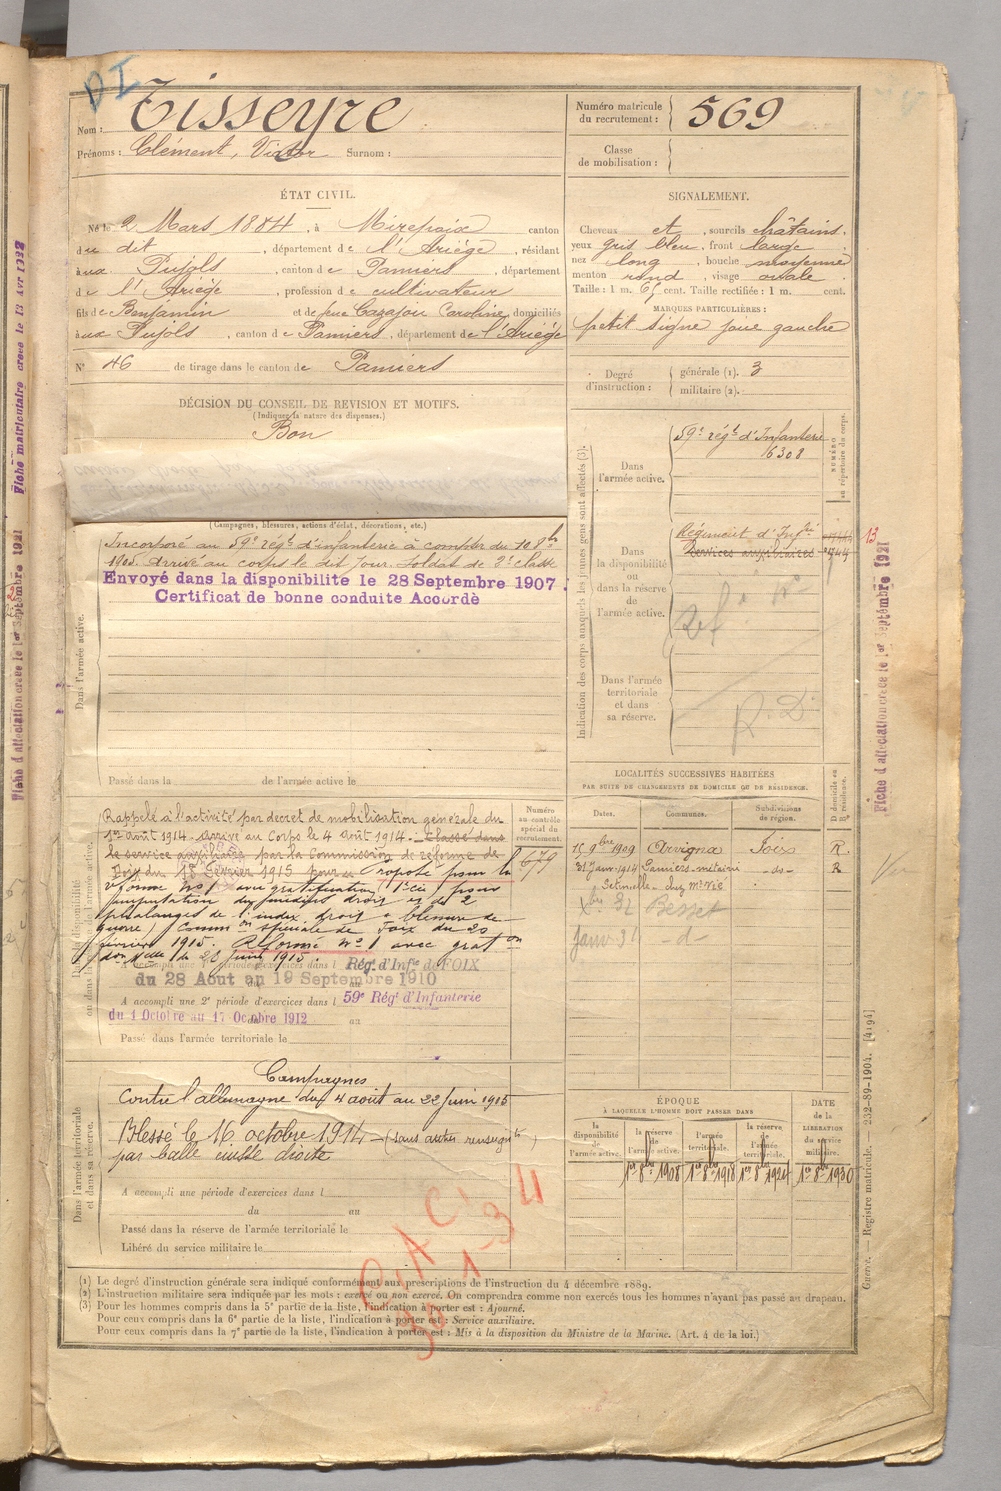 DI
Nom : Tisseyre
Prénoms : Clément, Victor Surnom :
Numéro matricule du recrutement : 569
Classe de mobilisation :
ÉTAT CIVIL.
Né le 2 Mars 1884, à Mirepoix canton
du dit, département de l'Ariège, résidant
aux Pujols, canton de Pamiers, département
de l'Ariège, profession de cultivateur
fils de Benjamin et de feue Cazajou Caroline, domiciliés
aux Pujols, canton de Pamiers, département de l'Ariège
N° 46 de tirage dans le canton de Pamiers
DÉCISION DU CONSEIL DE REVISION ET MOTIFS.
(Indiquer la nature des dispenses.)
Bon
SIGNALEMENT.
Cheveux et, sourcils châtains.
yeux gris bleu, front large
nez long, bouche moyenne
menton rond, visage ovale
Taille : 1 m. 67 cent. Taille rectifiée : 1 m. cent.
MARQUES PARTICULIÈRES :
petit signe joue gauche
Degré d'instruction : générale (1). 3
militaire (2).
(Campagnes, blessures, actions d'éclat, décorations, etc.)
Dans l'armée active.
Incorporé au 59e régt d'infanterie à compter du 10 8bre
1905. Arrivé au corps le dit jour. Soldat de 2e classe
Envoyé dans la disponibilité le 28 Septembre 1907.
Certificat de bonne conduite Accordé
Passé dans la de l'armée active le
Indication des corps auxquels les jeunes gens sont affectés (3).
NUMÉRO au répertoire du corps.
Dans l'armée active.
59e régt d'Infanterie
6308
Dans la disponibilité ou dans la réserve de l'armée active.
Régiment d'Infrie
Services auxiliaires
13
Dans l'armée territoriale et dans sa réserve.
R. D.
LOCALITÉS SUCCESSIVES HABITÉES
PAR SUITE DE CHANGEMENTS DE DOMICILE OU DE RÉSIDENCE.
Dates. Communes. Subdivisions de région. D domicile ou R résidence.
15 9bre 1909 Arvigna Foix R.
31 janv 1914 Pamiers métairie -do- R
Besset
Janv 34 -d-
Rappelé à l'activité par décret de mobilisation générale du
1er août 1914. Arrivé au Corps le 4 Août 1914. Classé dans
le service auxiliaire par la Commission de réforme de
Foix du 18 Février 1915 pour Proposé pour la
réforme no 1 avec gratification
amputation droit et de 2
phalanges de l'index droit blessure de
guerre) Common spéciale de Foix du 20
février 1915. Réformé no 1 avec grat on
Numéro au contrôle spécial du recrutement.
679
A accompli une 1re période d'exercices dans l Régt d'Infie de FOIX
du 28 Aout au 19 Septembre 1910
A accompli une 2e période d'exercices dans l 59e Régt d'Infanterie
du 1 Octobre au 17 Octobre 1912 au
Passé dans l'armée territoriale le
Dans l'armée territoriale et dans sa réserve.
Campagnes
Contre l'allemagne du 4 août au 22 Juin 1915
Blessé le 16 octobre 1914 - (sans autres renseignts)
par balle cuisse droite
A accompli une période d'exercices dans l
du au
Passé dans la réserve de l'armée territoriale le
Libéré du service militaire le
ÉPOQUE
À LAQUELLE L'HOMME DOIT PASSER DANS
la disponibilité de l'armée active. la réserve de l'armée active. l'armée territoriale. la réserve de l'armée territoriale.
DATE de la LIBÉRATION du service militaire.
1er 8bre 1908 1er 8bre 1918 1er 8bre 1924 1er 8bre 1930
(1) Le degré d'instruction générale sera indiqué conformément aux prescriptions de l'instruction du 4 décembre 1889.
(2) L'instruction militaire sera indiquée par les mots : exercé ou non exercé. On comprendra comme non exercés tous les hommes n'ayant pas passé au drapeau.
(3) Pour les hommes compris dans la 5e partie de la liste, l'indication à porter est : Ajourné.
Pour ceux compris dans la 6e partie de la liste, l'indication à porter est : Service auxiliaire.
Pour ceux compris dans la 7e partie de la liste, l'indication à porter est : Mis à la disposition du Ministre de la Marine. (Art. 4 de la loi.)
Guerre. — Registre matricule. — 232-89-1904. [4194]
Fiche d'affectation créée le 1er Septembre 1921
Fiche d'affectation créée le 1er Septembre 1921
Fiche matriculaire créée le 13 Avr 1922